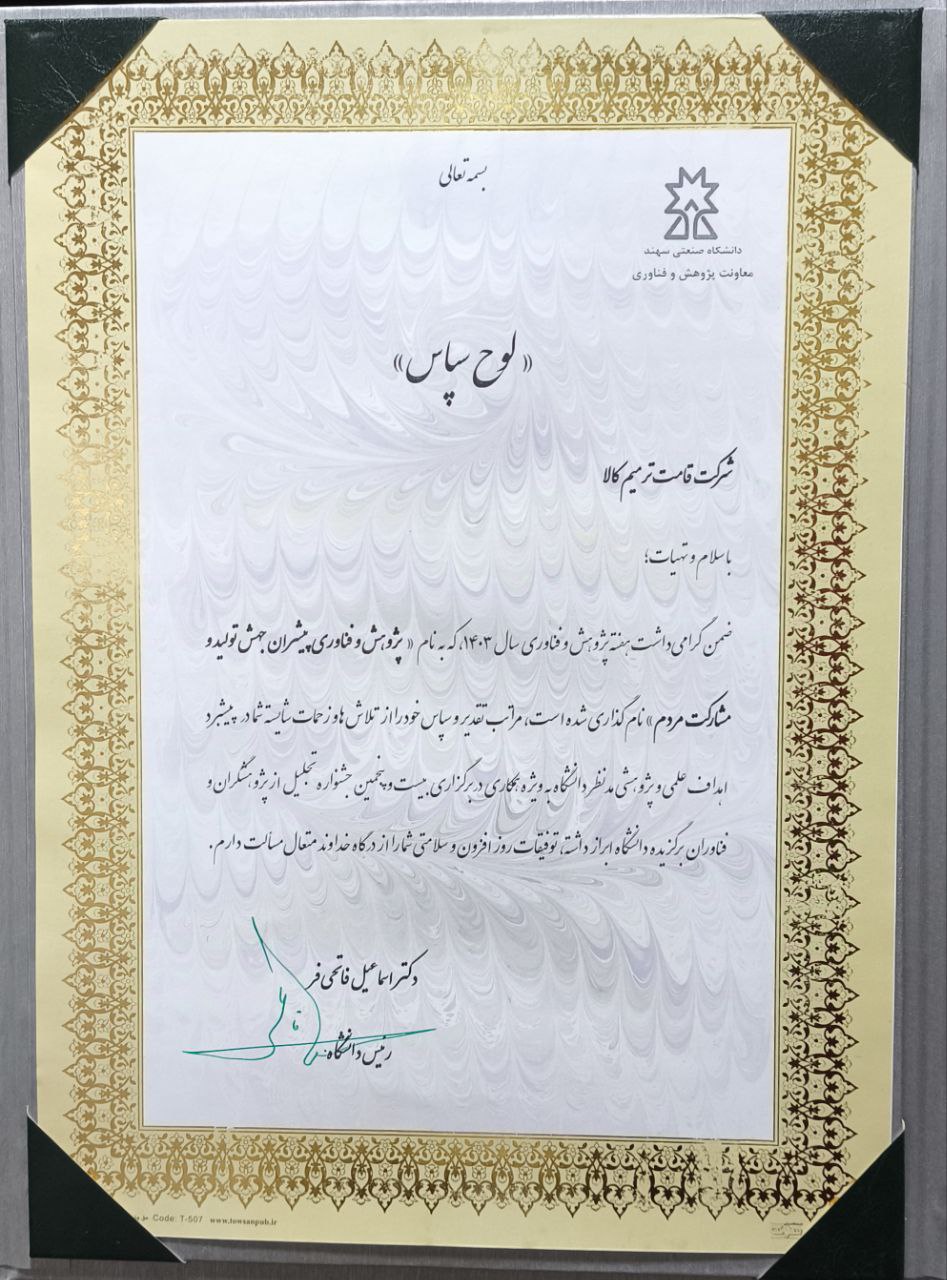 بسمه تعالی
دانشگاه صنعتی سهند
معاونت پژوهش و فناوری
« لوح سپاس »
شرکت قامت ترمیم کالا
با سلام و تهیات؛
ضمن گرامی داشت هفته پژوهش و فناوری سال ۱۴۰۳، که به نام « پژوهش و فناوری پیشران جهش تولید و
مشارکت مردم » نام گذاری شده است، مراتب تقدیر و سپاس خود را از تلاش ها و زحمات شایسته شما در پیشبرد
اهداف علمی و پژوهشی مد نظر دانشگاه به ویژه همکاری در برگزاری بیست و پنجمین جشنواره تجلیل از پژوهشگران و
فناوران برگزیده دانشگاه ابراز داشته، توفیقات روز افزون و سلامتی شما را از درگاه خداوند متعال مسألت دارم.
دکتر اسماعیل فاتحی فر
رئیس دانشگاه
Code: T-507 www.towsanpub.ir